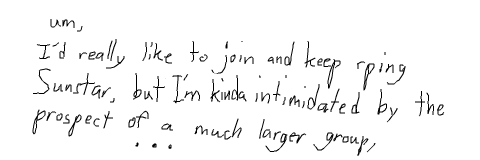 um,
I'd really like to join and keep rping
Sunstar, but I'm kinda intimidated by the
prospect of a much larger group,
...